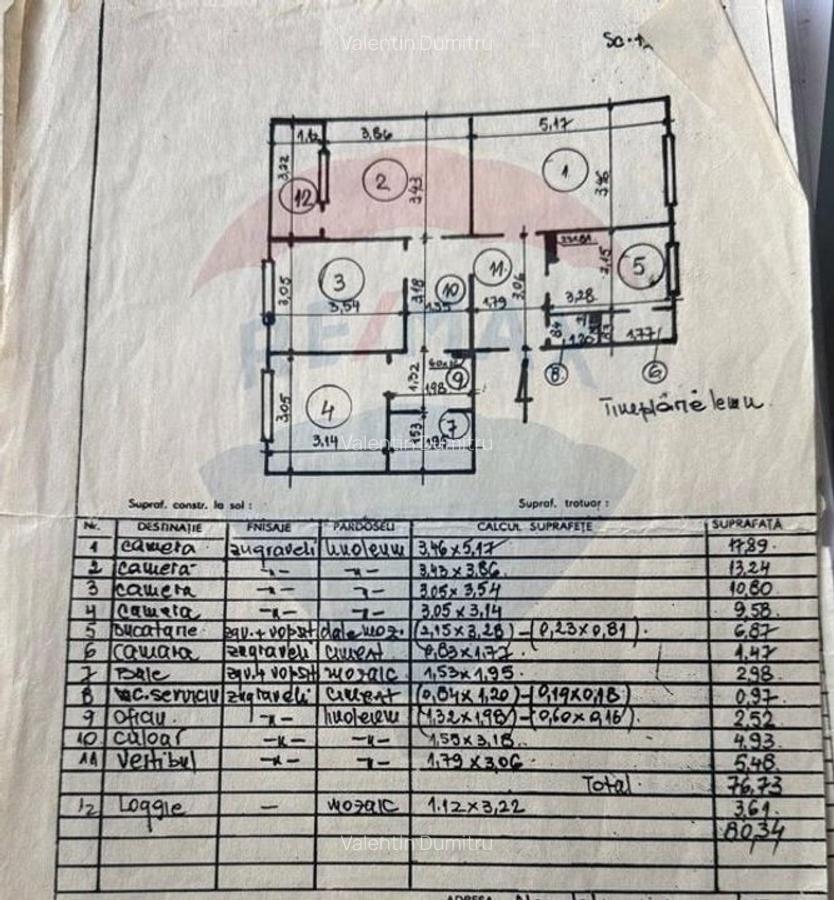 Valentin Dumitru
Sc.
1,12 3,86 5,17
3,22 12 2 3,43 1 3,46
3 3,05 3,54 3,18 10 1,55 11 1,79 3,06 23x81 2,15 5 3,28
84 1,20 83 1,77
8 6
4 3,05 3,14 1,32 60x16 9 1,98
Tîmplărie lemn
1,53 7 1,95
Valentin Dumitru
RE/MAX
Supraf. constr. la sol : Supraf. trotuar :
Nr. DESTINAȚIE FNISAJE PARDOSELI CALCUL SUPRAFEȚE SUPRAFAȚĂ
1 camera zugraveli linoleum 3,46x5,17 17,89
2 camera -"- -"- 3,43x3,86 13,24
3 camera -"- -"- 3,05x3,54 10,80
4 camera -"- -"- 3,05x3,14 9,58
5 bucatarie zgv.+vopsit dale moz. (2,15x3,28)-(0,23x0,81) 6,87
6 camara zugraveli ciment 0,83x1,77 1,47
7 Baie zgv.+vopsit mozaic 1,53x1,95 2,98
8 wc.serviciu zugraveli ciment (0,84x1,20)-(0,19x0,18) 0,97
9 oficiu -"- linoleum (1,32x1,98)-(0,60x0,16) 2,52
10 culoar -"- -"- 1,55x3,18 4,93
11 Vestibul -"- -"- 1,79x3,06 5,48
Total 76,73
12 Loggie — mozaic 1.12x3,22 3,61
80,34
Valentin Dumitru